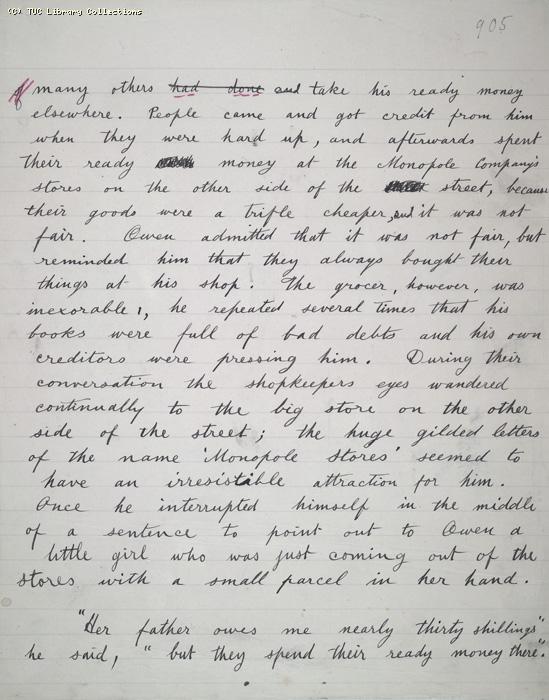 (C) TUC Library Collections
905
of many others had done and take his ready money
elsewhere. People came and got credit from him
when they were hard up, and afterwards spent
their ready money at the Monopole Company's
stores on the other side of the street, because
their goods were a trifle cheaper, and it was not
fair. Owen admitted that it was not fair, but
reminded him that they always bought their
things at his shop. The grocer, however, was
inexorable, he repeated several times that his
books were full of bad debts and his own
creditors were pressing him. During their
conversation the shopkeepers eyes wandered
continually to the big store on the other
side of the street; the huge gilded letters
of the name 'Monopole Stores' seemed to
have an irresistable attraction for him.
Once he interrupted himself in the middle
of a sentence to point out to Owen a
little girl who was just coming out of the
stores with a small parcel in her hand.
"Her father owes me nearly thirty shillings"
he said, "but they spend their ready money there".